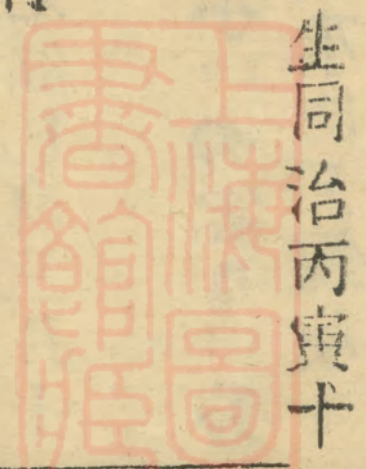 生同治丙寅十
上海圖
書館藏